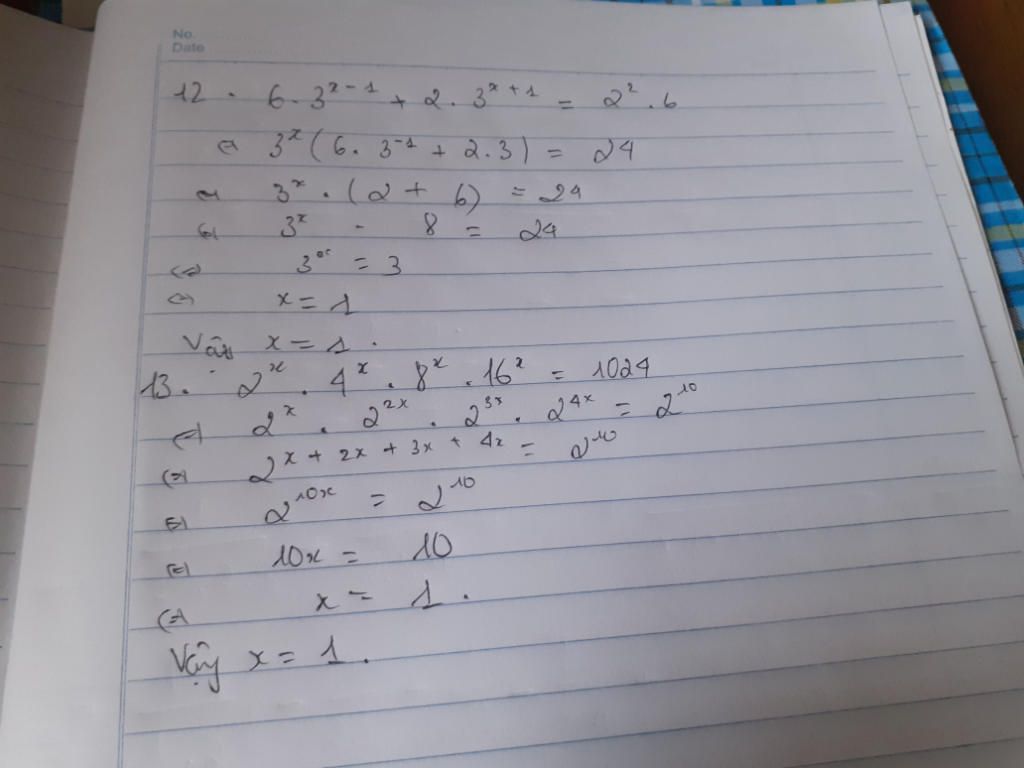 No.
Date
12. 6.3^{x-1} + 2.3^{x+1} = 2^2.6
⇔ 3^x(6.3^{-1} + 2.3) = 24
⇔ 3^x.(2 + 6) = 24
⇔ 3^x . 8 = 24
⇔ 3^x = 3
⇔ x = 1
Vậy x = 1.
13. 2^x.4^x.8^x.16^x = 1024
⇔ 2^x.2^{2x}.2^{3x}.2^{4x} = 2^{10}
⇔ 2^{x+2x+3x+4x} = 2^{10}
⇔ 2^{10x} = 2^{10}
⇔ 10x = 10
⇔ x = 1.
Vậy x = 1.